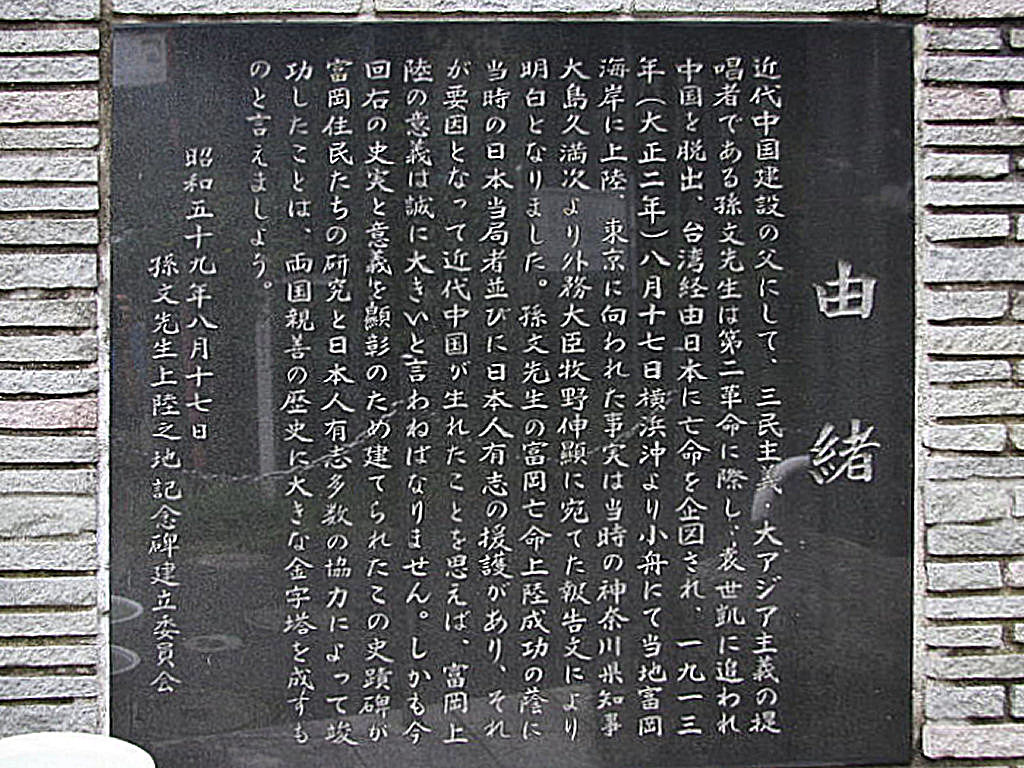 由緒
近代中国建設の父にして、三民主義・大アジア主義の提
唱者である孫文先生は第二革命に際し、袁世凱に追われ
中国を脱出、台湾経由日本に亡命を企図され、一九一三
年(大正二年)八月十七日横浜沖より小舟にて当地富岡
海岸に上陸、東京に向われた事実は当時の神奈川県知事
大島久満次より外務大臣牧野伸顕に宛てた報告文により
明白となりました。孫文先生の富岡亡命上陸成功の蔭に
当時の日本当局者並びに日本人有志の援護があり、それ
が要因となって近代中国が生れたことを思えば、富岡上
陸の意義は誠に大きいと言わねばなりません。しかも今
回右の史実と意義を顯彰のため建てられたこの史蹟碑が
富岡住民たちの研究と日本人有志多数の協力によって竣
功したことは、両国親善の歴史に大きな金字塔を成すも
のと言えましょう。
昭和五十九年八月十七日
孫文先生上陸之地記念碑建立委員会